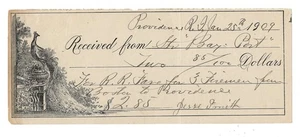 Providence R.I. Jan 25th 1909
Received from The "Bay Post"
Two 85/100 Dollars
For R.R. Fares for 3 Firemen from
Boston to Providence
$2.85 Smith